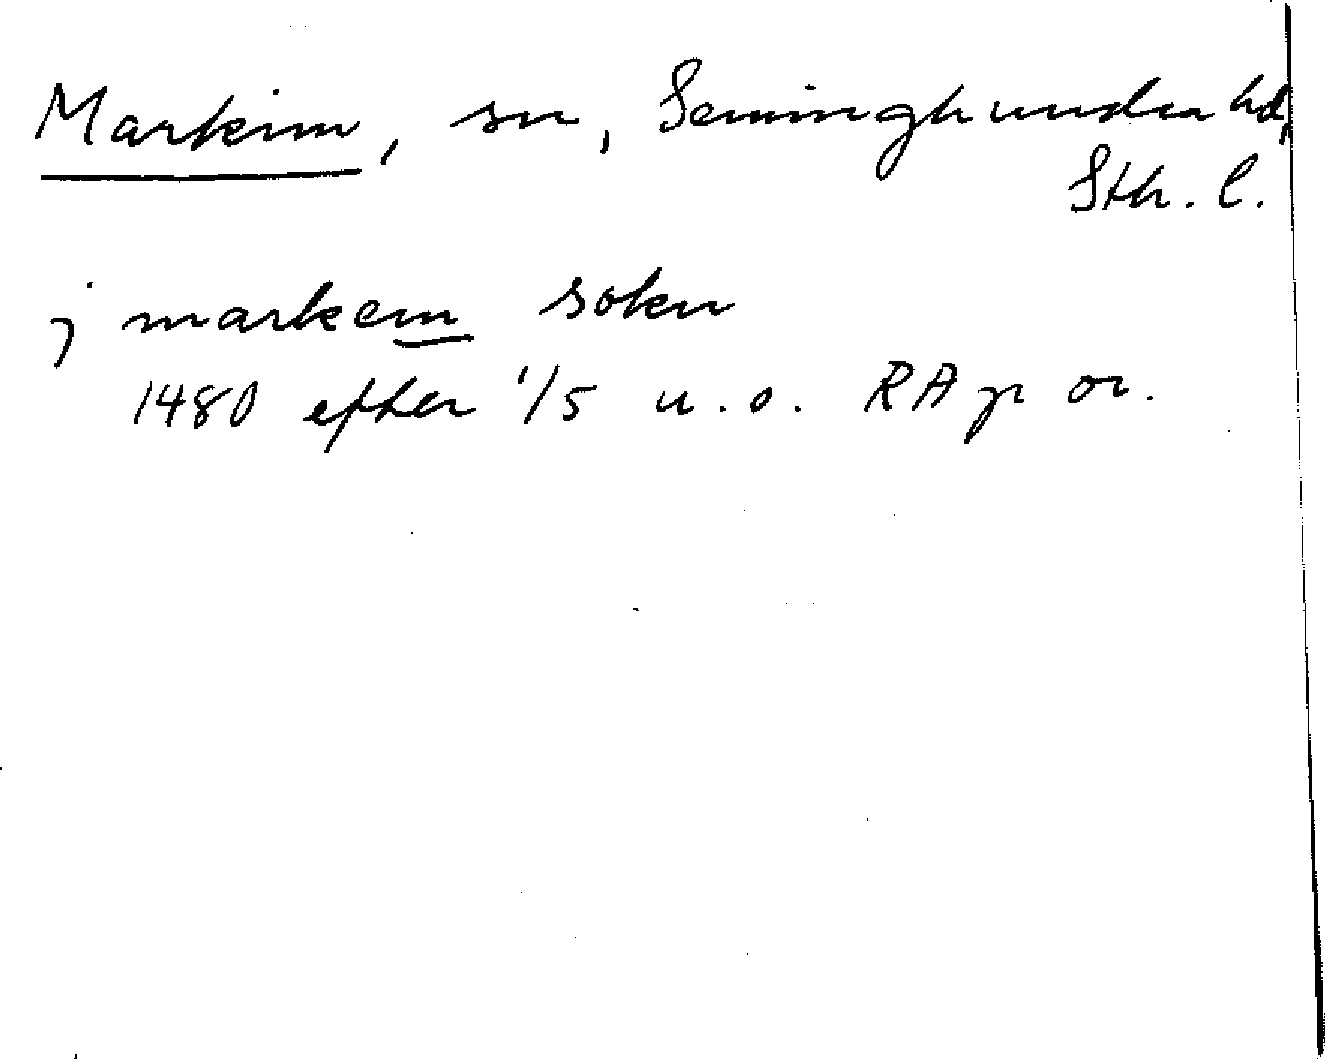 Markim, sn, Seminghundra hd,
Sth. l.
j markem sokn
1480 efter 1/5 u.o. RA p or.